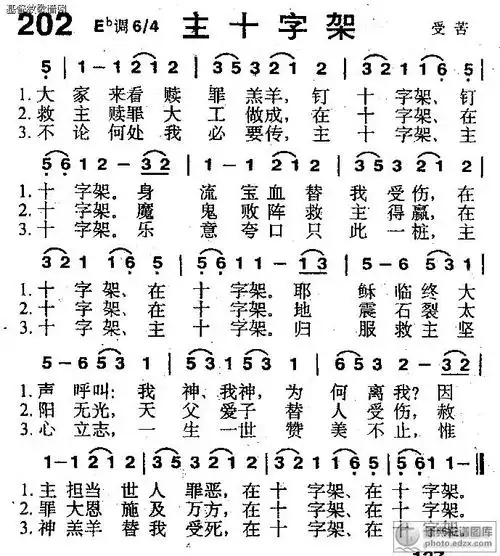 基督教歌谱网
202 E♭调 6/4 主十字架 受苦
5 | 1-1 2 1 2 | 3 5 3 2 1 2 | 3 2 1 1 6 5 |
1.大家来看赎罪羔羊,钉十字架,钉
2.救主赎罪大工做成,在十字架、在
3.不论何处我必要传,主十字架、主
5 6 1 2 - 3 2 | 1-1 2 1 2 | 3 5 3 2 1 2 |
1.十字架。身流宝血替我受伤,在
2.十字架。魔鬼败阵救主得赢,在
3.十字架。乐意夸口只此一桩,主
3 2 1 1 6 5 | 5 6 1 1 - 1 3 | 5-6 5 5 3 1 |
1.十字架、在十字架。耶稣临终大
2.十字架、主十字架。地震石裂太
3.十字架、主十字架。归服救主坚
5-6 5 5 3 1 | 5 5 3 1 5 5 3 1 | 2 3 2 1 2 - 3 2 |
1.声呼叫:我神、我神,为何离我?因
2.阳无光,天父爱子替人受伤,赦
3.心立志,一生一世赞美不止,惟
1-1 2 1 2 | 3 5 3 2 1 2 | 3 2 1 1 6 5 | 5 6 1 1 - ‖
1.主担当世人罪恶,在十字架、在十字架。
2.罪大恩施及万方,在十字架、在十字架。
3.神羔羊替我受死,在十字架、在十字架。
www.edzx.com